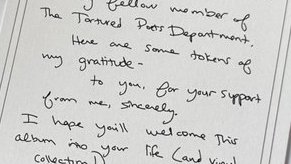 fellow member of
The Tortured Poets Department.
Here are some tokens of
my gratitude -
to you, for your support
from me, sincerely.
I hope you'll welcome this
album into your life (and vinyl
collection)